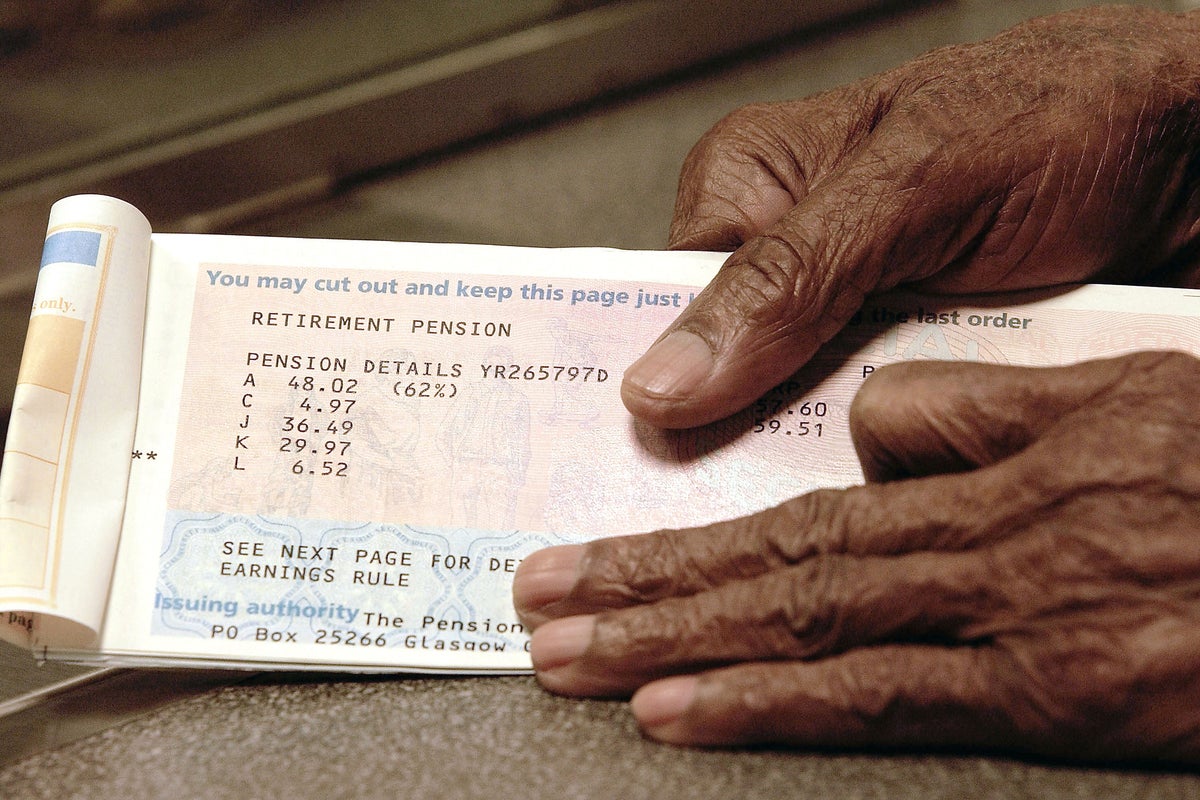 only.
You may cut out and keep this page just
the last order
RETIREMENT PENSION
PENSION DETAILS YR265797D
A 48.02 (62%)
C 4.97
J 36.49
K 29.97
L 6.52
57.60
59.51
**
SEE NEXT PAGE FOR
EARNINGS RULE
Issuing authority The Pension
PO Box 25266 Glasgow
pag